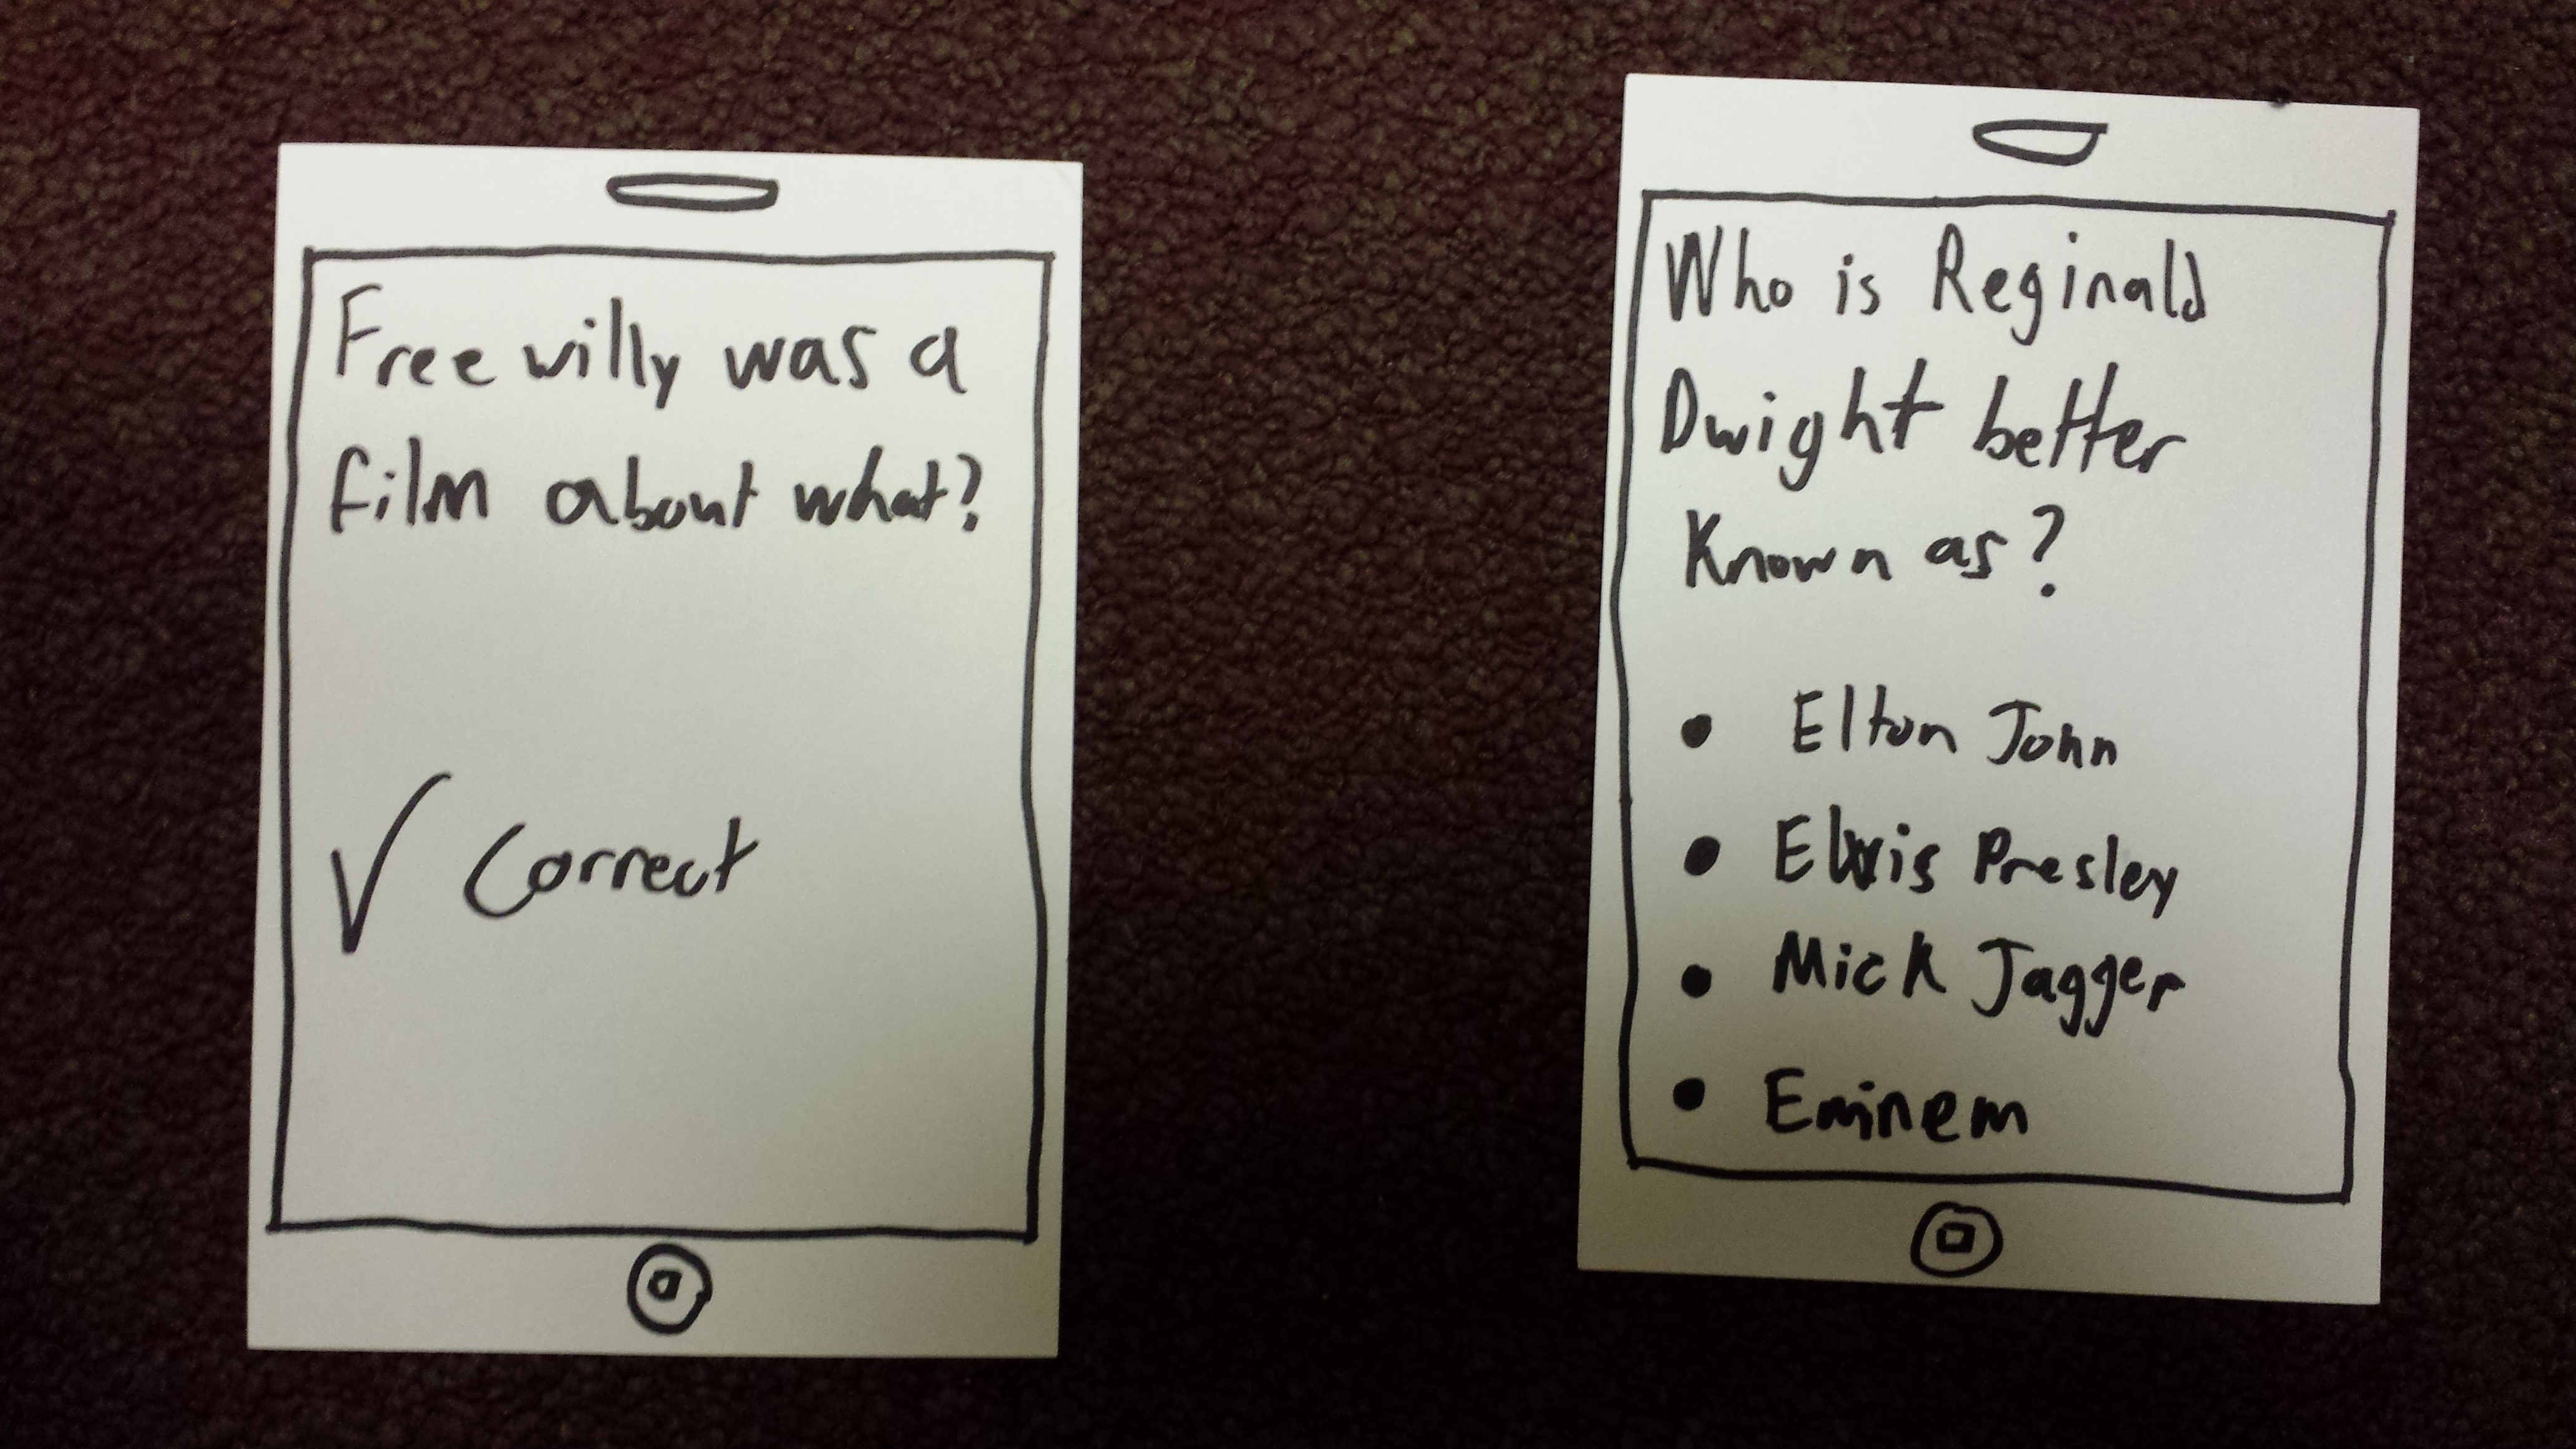 Free willy was a
film about what?
Correct
Who is Reginald
Dwight better
Known as?
• Elton John
• Elvis Presley
• Mick Jagger
• Eminem